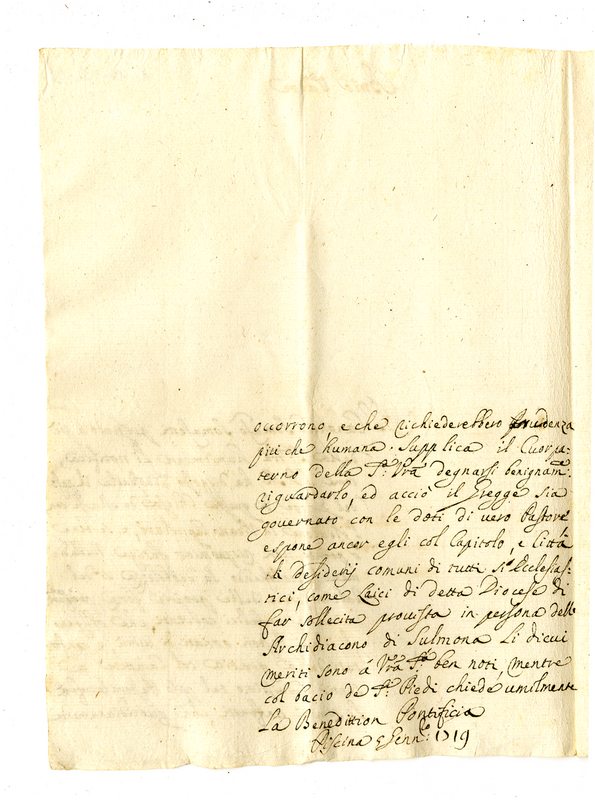 occorrono, e che richiederebbero prudenza
più che humana. Supplica il Cuor pa:
terno della S.tà Vrã degnarsi benignam.te
riguardarlo, ed acciò il Gregge sia
governato con le doti di vero Pastore
espone ancor egli col Capitolo, e Città
li desiderij comuni di tutti sì Ecclesias:
tici, come Laici di detta Diocesa di
far sollecita provista in persona dell'
Archidiacono di Sulmona li di cui
meriti sono á Vrã S.tà ben noti, mentre
col bacio de S.ti Piedi chiede umilmente
La Benedittion Pontificia
Piscina Genn.o 1719